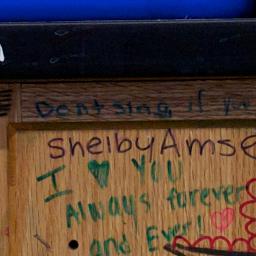 Dont sing if
Shelby Amse
I ♥ YOU
Always forever
and Ever!